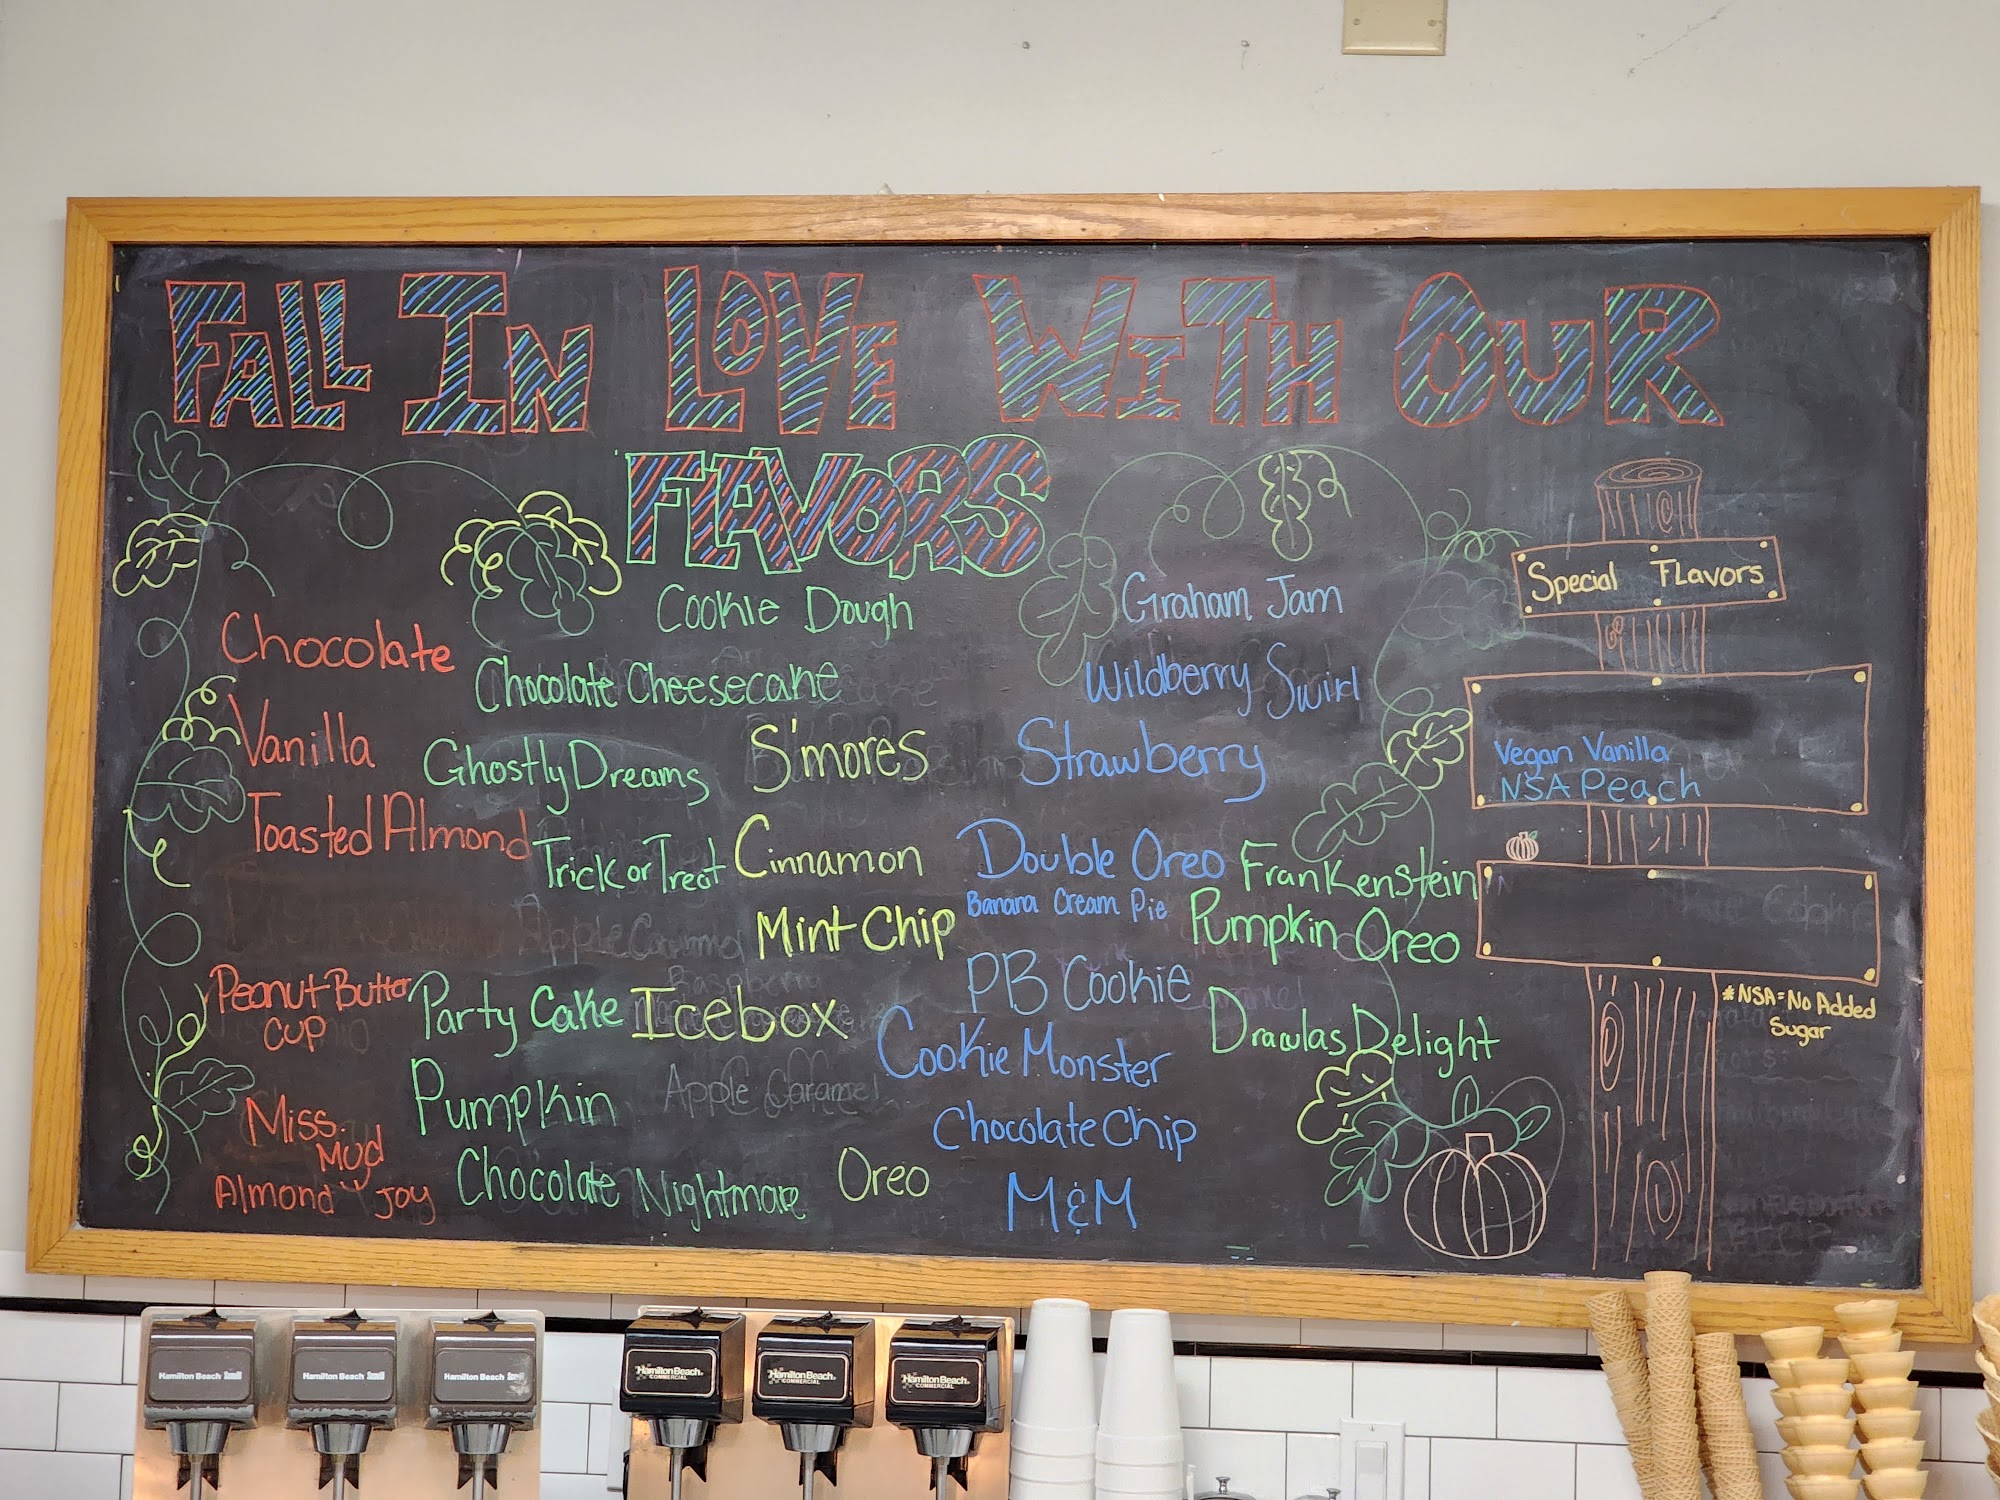 FALL IN LOVE WITH OUR
FLAVORS
Chocolate
Vanilla
Toasted Almond
Peanut Butter
Cup
Miss.
Mud
Almond Joy
Cookie Dough
Chocolate Cheesecake
Ghostly Dreams
Trick or Treat
Apple Caramel
Party Cake
Pumpkin
Chocolate Nightmare
S'mores
Cinnamon
Mint Chip
Raspberry
Icebox
Apple Caramel
Oreo
Graham Jam
Wildberry Swirl
Strawberry
Double Oreo
Banana Cream Pie
PB Cookie
Cookie Monster
Chocolate Chip
M&M
Frankenstein
Pumpkin Oreo
Draculas Delight
Special Flavors
Vegan Vanilla
NSA Peach
*NSA=No Added
Sugar
Hamilton Beach
Hamilton Beach
Hamilton Beach
Hamilton Beach
COMMERCIAL
Hamilton Beach
COMMERCIAL
Hamilton Beach
COMMERCIAL